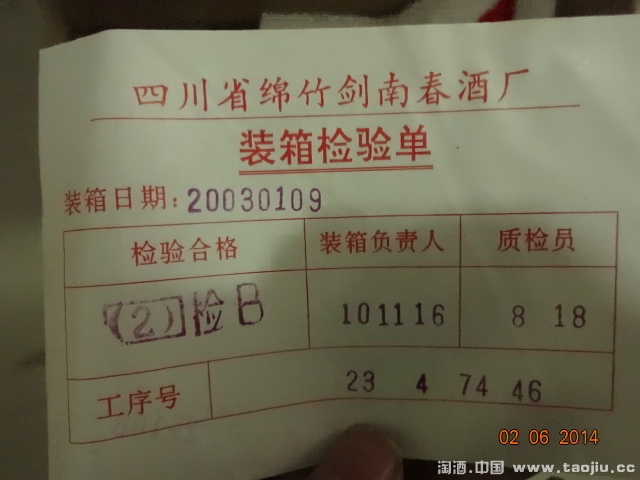 四川省绵竹剑南春酒厂
装箱检验单
装箱日期：20030109
检验合格 装箱负责人 质检员
(2)检B 101116 8 18
工序号 23 4 74 46
02 06 2014
淘酒.中国 www.taojiu.cc